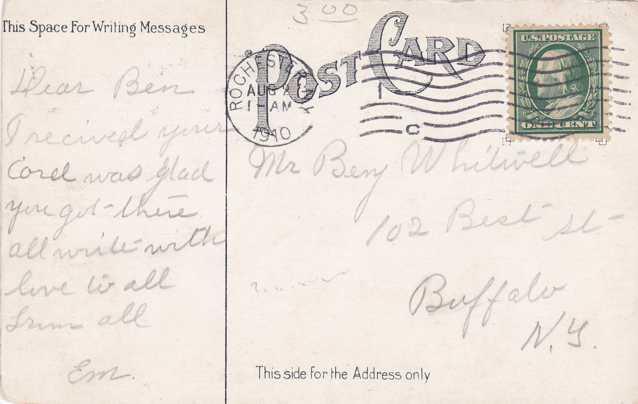 3 00
This Space For Writing Messages
POST CARD
U.S. POSTAGE
ONE CENT
ROCHESTER
AUG
1-AM
1910
N.Y.
1
C
Dear Ben
I recived your
Card was glad
you got there
all write with
love to all
from all
Em.
Mr Benj Whitwell
102 Best St
Buffalo
N.Y.
This side for the Address only